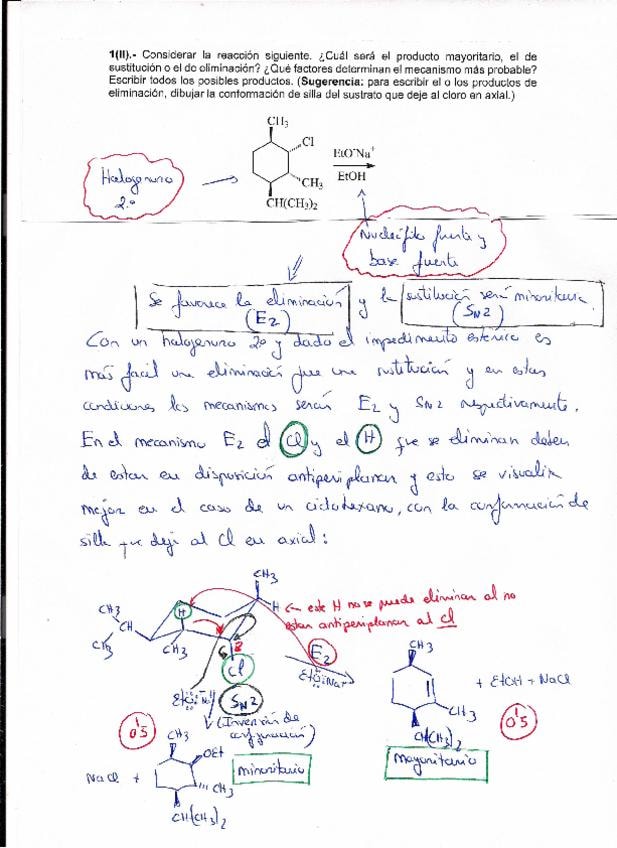 1(II).- Considerar la reacción siguiente. ¿Cuál será el producto mayoritario, el de
sustitución o el de eliminación? ¿Qué factores determinan el mecanismo más probable?
Escribir todos los posibles productos. (Sugerencia: para escribir el o los productos de
eliminación, dibujar la conformación de silla del sustrato que deje al cloro en axial.)
CH3
Cl
CH3
CH(CH3)2
EtO-Na+
EtOH
Halogenuro
2.º
Nucleófilo fuerte y
base fuerte
Se favorece la eliminación y la sustitución será minoritaria.
(E2)
(SN2)
Con un halogenuro 2º y dado el impedimento estérico es
más fácil una eliminación que una sustitución y en estas
condiciones los mecanismos serán E2 y SN2 respectivamente.
En el mecanismo E2 el Cl y el H que se eliminan deben
de estar en disposición antiperiplanar y esto se visualiza
mejor en el caso de un ciclohexano, con la conformación de
silla que deje al Cl en axial:
CH3
H
← este H no se puede eliminar al no
estar antiperiplanar al Cl
H
CH3
CH
CH3
CH3
Cl
E2
SN2
(Inversión de
configuración)
0'5
CH3
OEt
CH3
CH(CH3)2
NaCl +
minoritario
CH3
CH3
CH(CH3)2
+ EtOH + NaCl
0'5
mayoritario